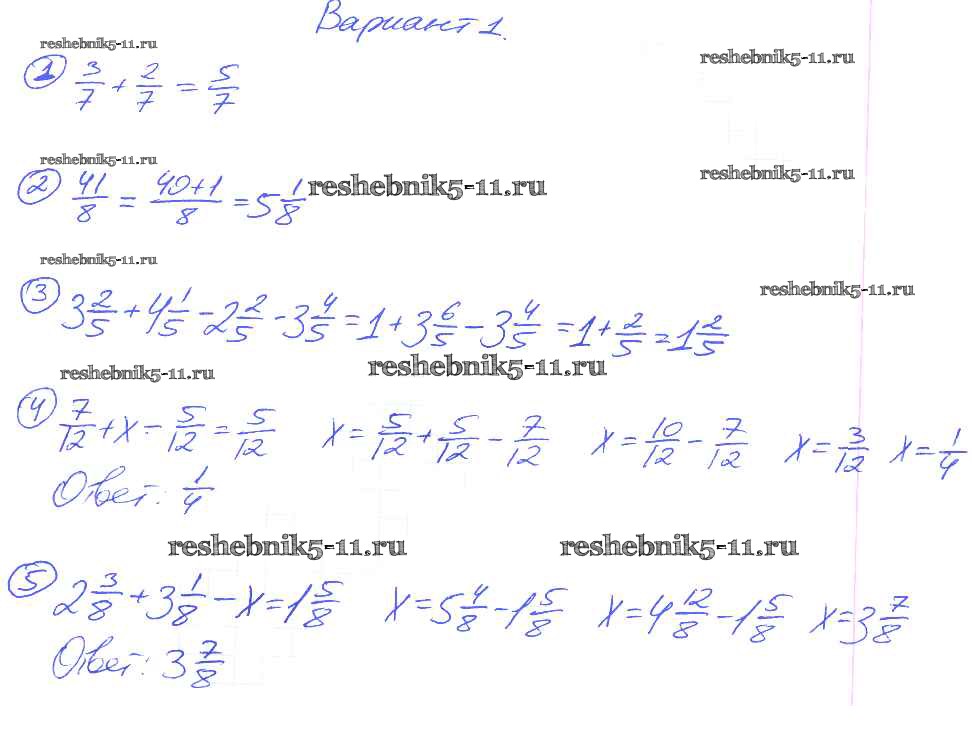 Вариант 1.
reshebnik5-11.ru reshebnik5-11.ru
① 3/7 + 2/7 = 5/7
reshebnik5-11.ru reshebnik5-11.ru
② 41/8 = 40+1/8 = 5 1/8 reshebnik5-11.ru
reshebnik5-11.ru reshebnik5-11.ru
③ 3 2/5 + 4 1/5 - 2 2/5 - 3 4/5 = 1 + 3 6/5 - 3 4/5 = 1 + 2/5 = 1 2/5
reshebnik5-11.ru reshebnik5-11.ru
④ 7/12 + x - 5/12 = 5/12 x = 5/12 + 5/12 - 7/12 x = 10/12 - 7/12 x = 3/12 x = 1/4
Ответ: 1/4
reshebnik5-11.ru reshebnik5-11.ru
⑤ 2 3/8 + 3 1/8 - x = 1 5/8 x = 5 4/8 - 1 5/8 x = 4 12/8 - 1 5/8 x = 3 7/8
Ответ: 3 7/8